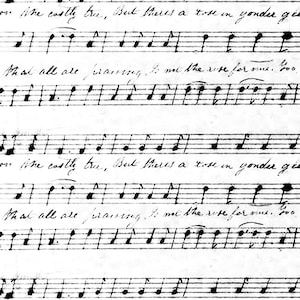 the castly tree, But there's a rose in yonder g
that all are praising, Is not the rose for me. Too
on the castly tree, But there's a rose in yonder ga
that all are praising, Is not the rose for me. Too